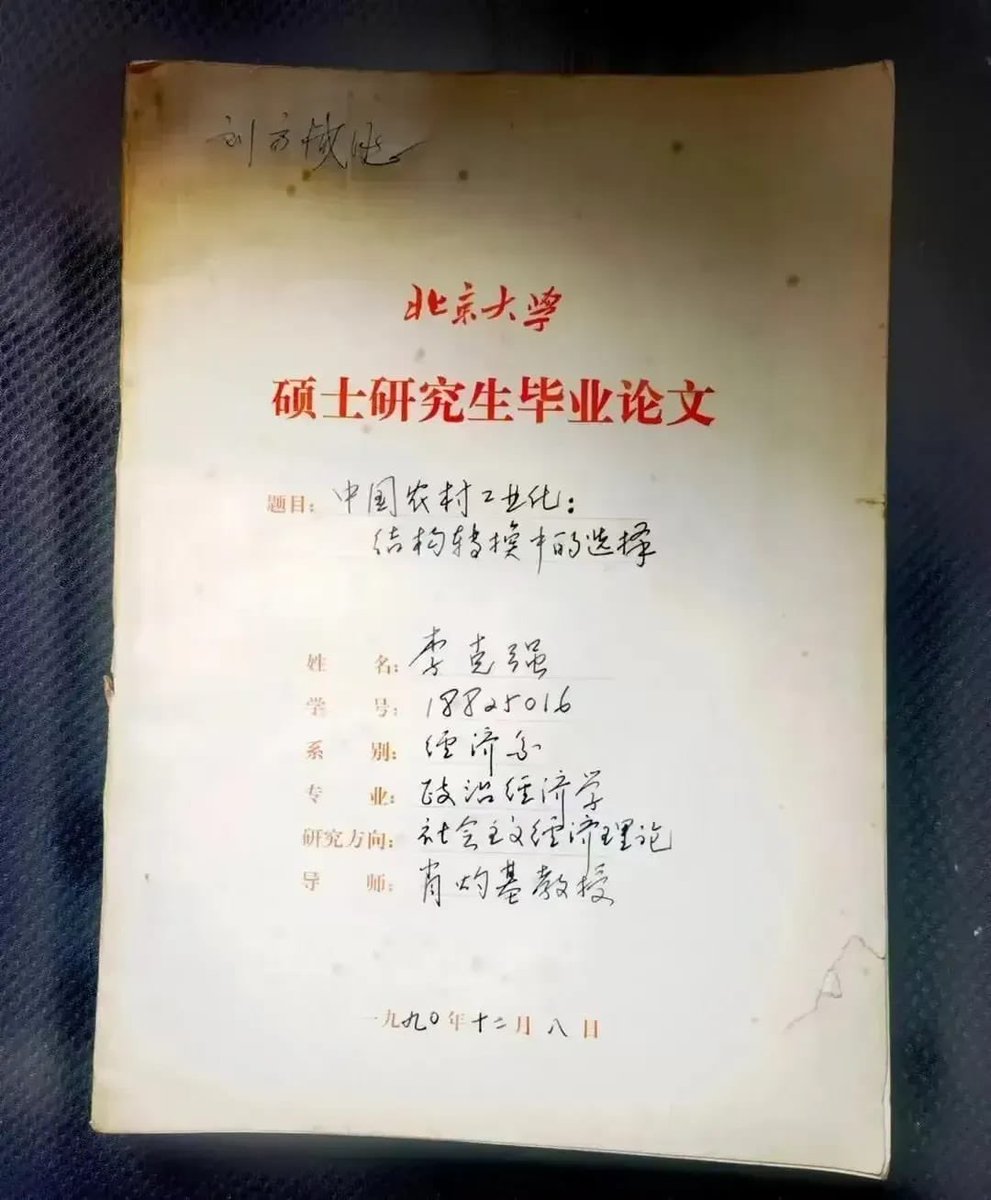 北京大学
硕士研究生毕业论文
题目：中国农村工业化：
结构转换中的选择
姓 名：李克强
学 号：18825016
系 别：经济系
专 业：政治经济学
研究方向：社会主义经济理论
导 师：肖灼基教授
一九九〇年十二月八日